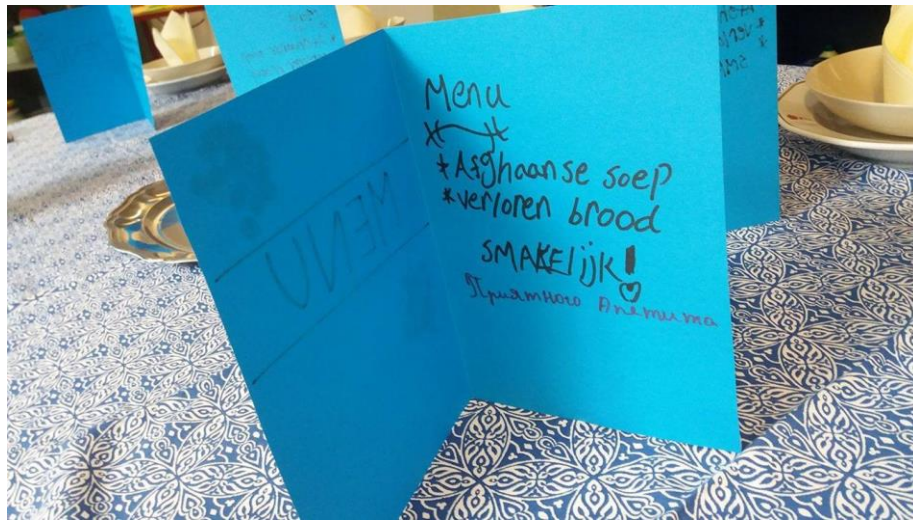 Menu
*Afghaanse soep
*verloren brood
SMAKElijk!
Приятного Апетита
MENU